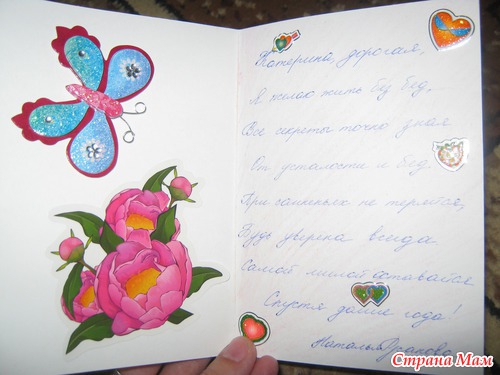 Катерина, дорогая,
Я желаю жить без бед.
Все секреты точно зная
От усталости и бед.
При заминках не теряйся,
Будь уверена всегда
Самой милой оставайся
Спустя долгие года!
Наталья
Страна Мам